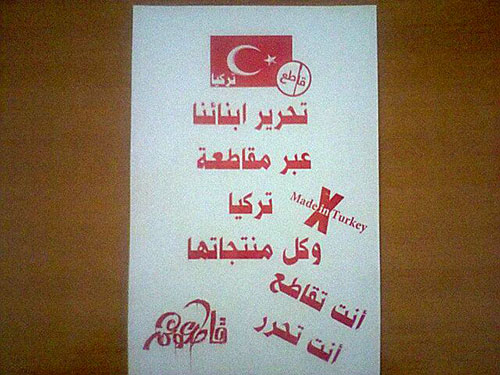 تركيا
قاطع
تحرير ابنائنا
عبر مقاطعة
تركيا
Made In Turkey
X
وكل منتجاتها
أنت تقاطع
أنت تحرر
قاطعوهم